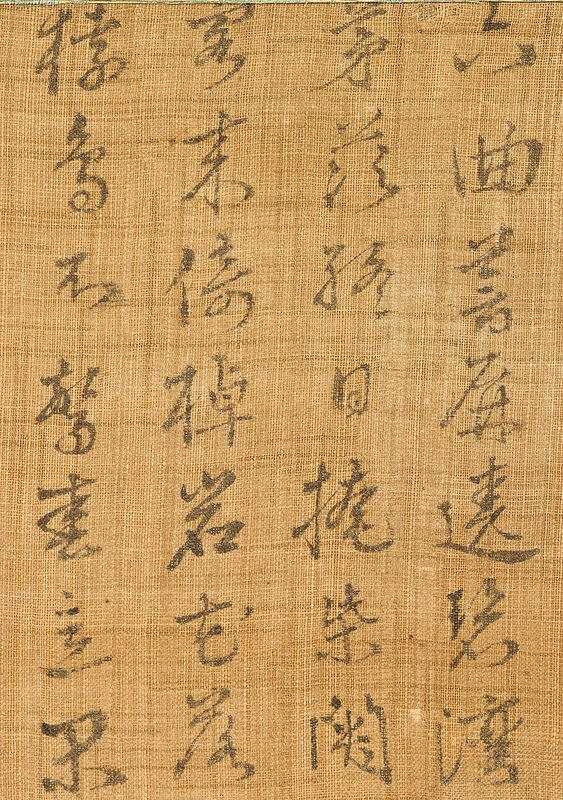 六曲蒼屏遶碧灣
茅茨終日掩柴關
客来倚棹岩花落
猿鳥不驚春意閑